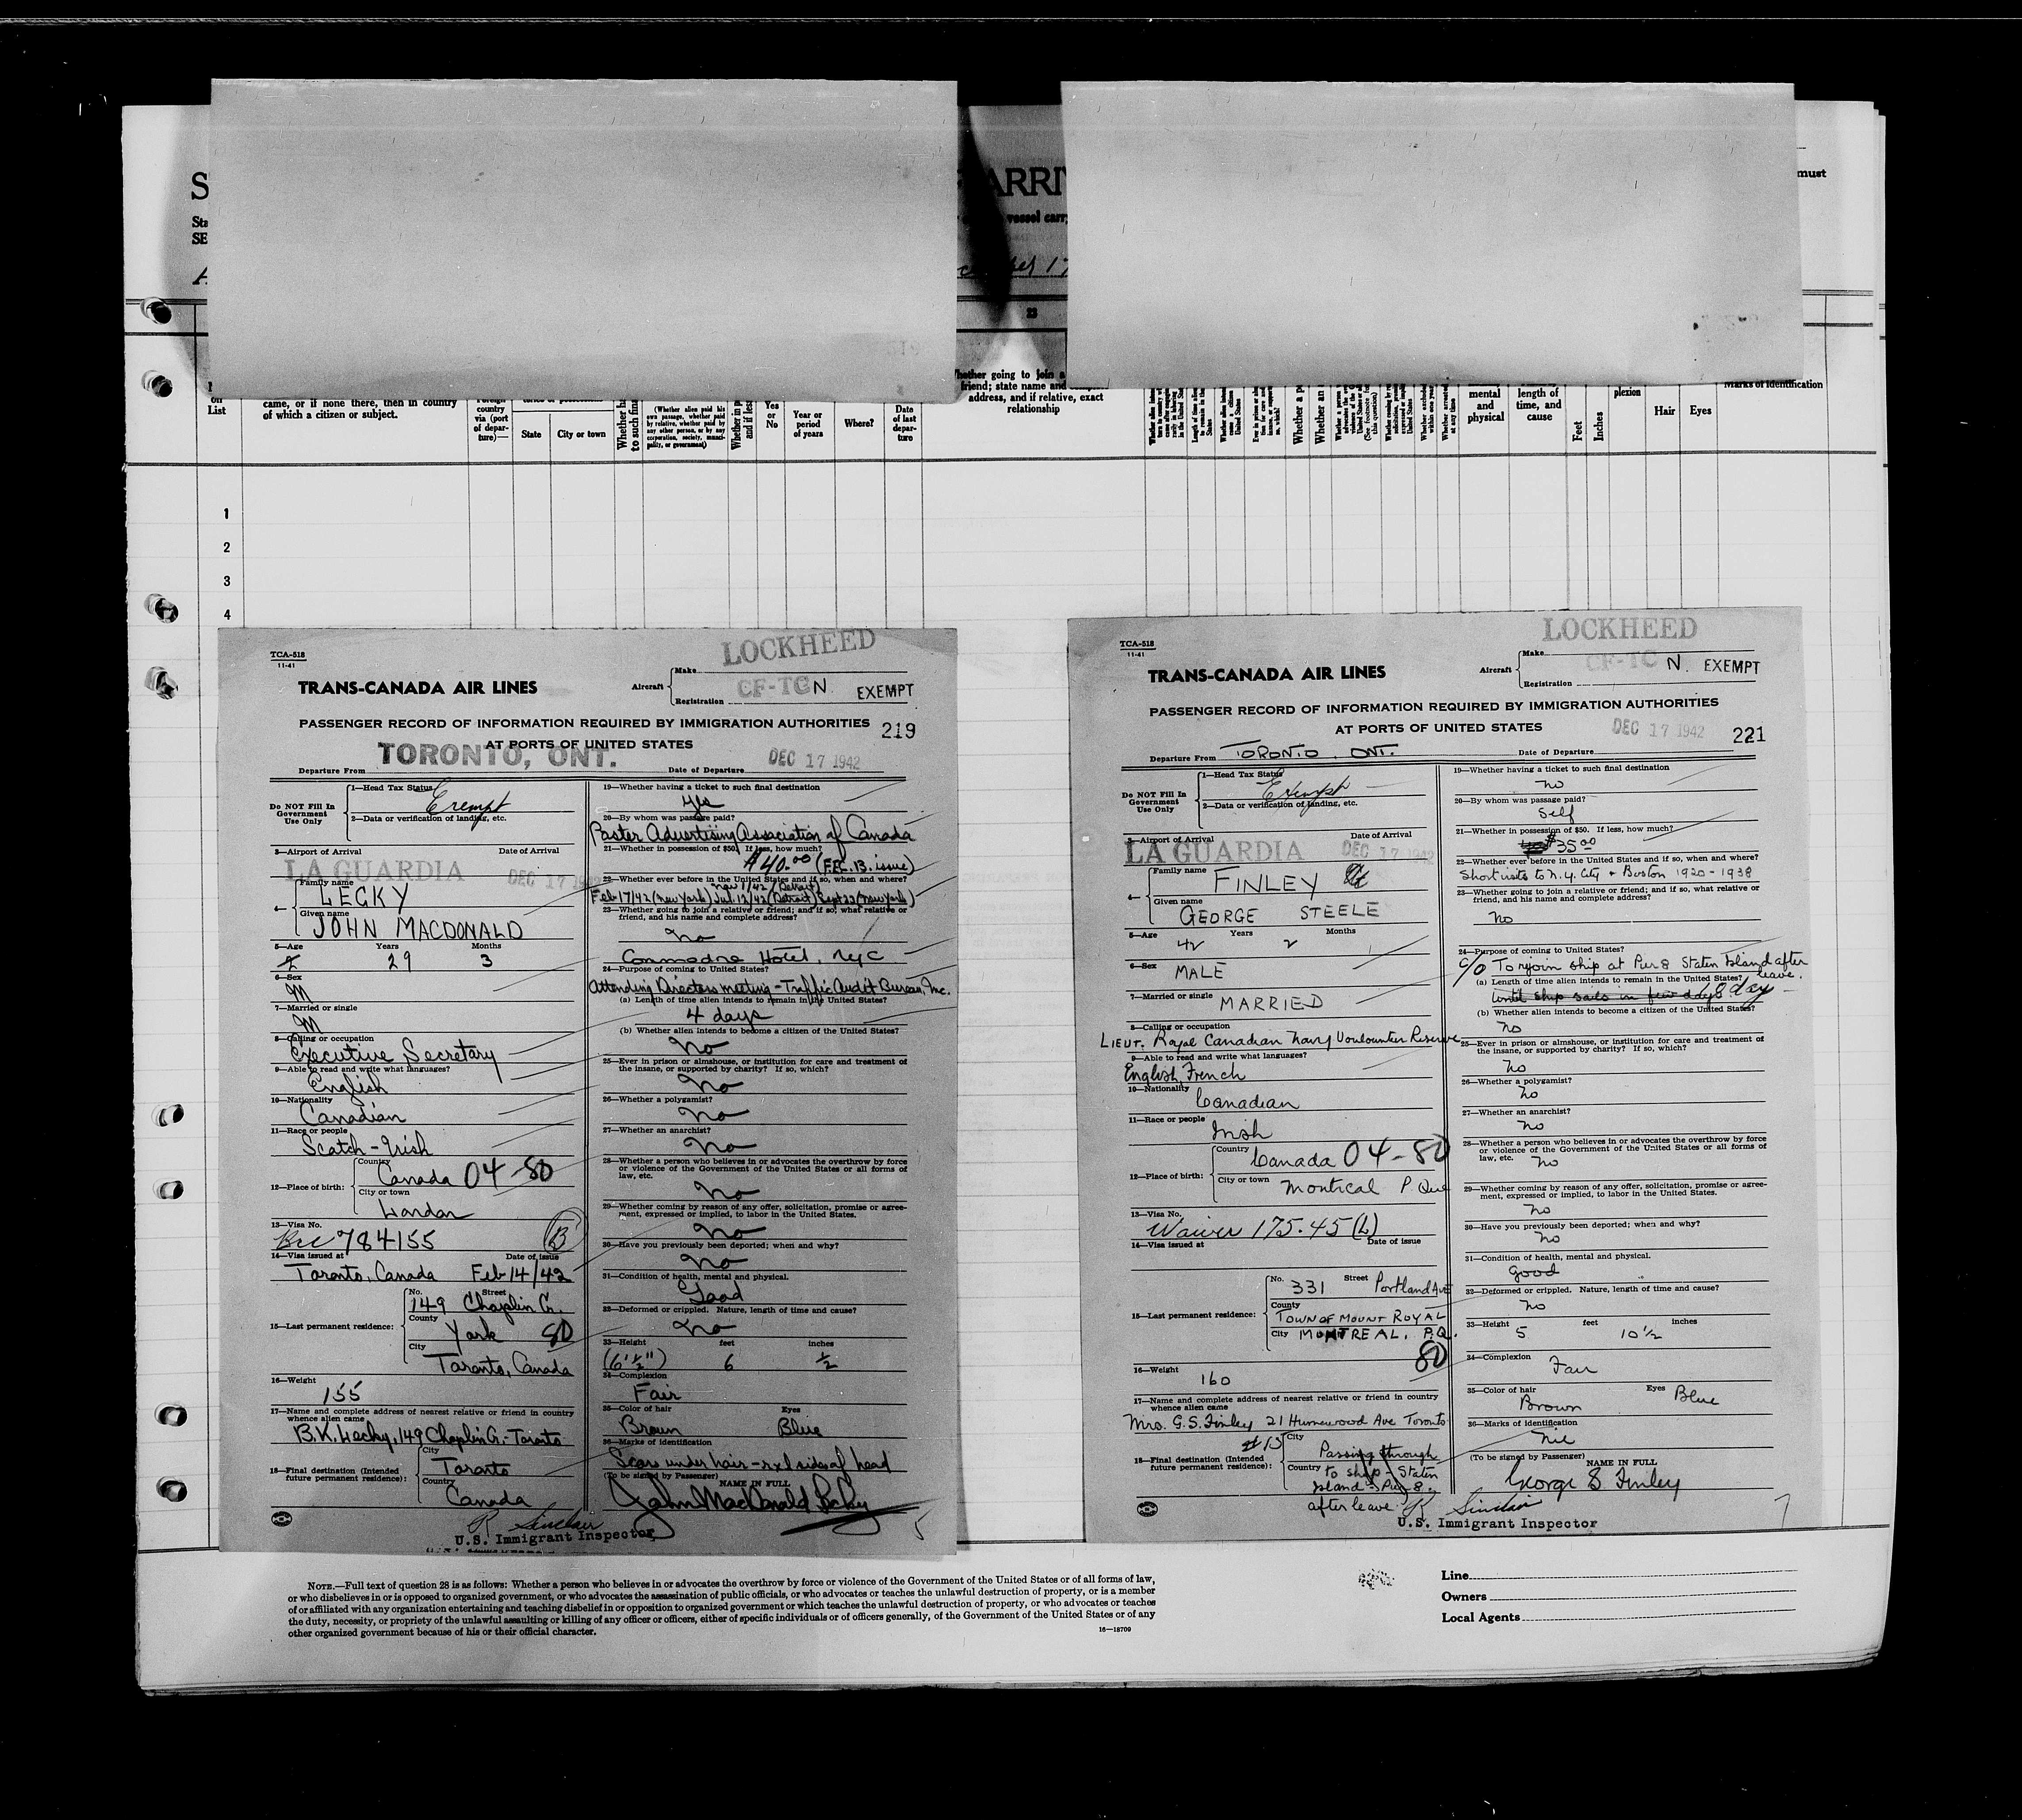 ARRI
must
vessel carry
23
on
List
came, or if none there, then in country
of which a citizen or subject.
country
via (port
of depar-
ture)—
State
City or town
(Whether alien paid his
own passage, whether paid
by relative, whether paid by
any other person, or by any
corporation, society, munici-
pality, or government)
Yes
or
No
Year or
period
of years
Where?
Date
of last
depar-
ture
Whether going to join a
friend; state name and complete
address, and if relative, exact
relationship
mental
and
physical
length of
time, and
cause
Feet
Inches
plexion
Hair
Eyes
Marks of identification
1
2
3
4
TCA-518
11-41
LOCKHEED
TRANS-CANADA AIR LINES
Aircraft
Make
Registration
CF-TC N.
EXEMPT
PASSENGER RECORD OF INFORMATION REQUIRED BY IMMIGRATION AUTHORITIES
219
AT PORTS OF UNITED STATES
Departure From TORONTO, ONT.
Date of Departure DEC 17 1942
Do NOT Fill In
Government
Use Only
1—Head Tax Status Exempt
2—Data or verification of landing, etc.
3—Airport of Arrival
Date of Arrival
LA GUARDIA DEC 17 1942
4—
Family name
LECKY
Given name
JOHN MACDONALD
5—Age Years Months
29 3
6—Sex
M
7—Married or single
M
8—Calling or occupation
Executive Secretary
9—Able to read and write what languages?
English
10—Nationality
Canadian
11—Race or people
Scotch-Irish
12—Place of birth:
Country
Canada 04-80
City or town
London
13—Visa No.
784155 (B)
14—Visa issued at Date of issue
Toronto, Canada Feb 14/42
15—Last permanent residence:
No. Street
149 Chaplin Cr.
County
York 80
City
Toronto, Canada
16—Weight
155
17—Name and complete address of nearest relative or friend in country
whence alien came
B.K. Lecky, 149 Chaplin Cr.-Toronto
18—Final destination (Intended
future permanent residence):
City
Toronto
Country
Canada
19—Whether having a ticket to such final destination
Yes
20—By whom was passage paid?
Poster Advertising Association of Canada
21—Whether in possession of $50. If less, how much?
$40.00 (F.E.C. 13. issue)
22—Whether ever before in the United States and if so, when and where?
Nov 1/42 (Detroit)
Feb 17/42 (New York) Jul. 12/42 (Detroit) Sept 22 (New York)
23—Whether going to join a relative or friend; and if so, what relative or
friend, and his name and complete address?
No
Commodore Hotel, NYC
24—Purpose of coming to United States?
Attending Directors meeting - Traffic Audit Bureau, Inc.
(a) Length of time alien intends to remain in the United States?
4 days
(b) Whether alien intends to become a citizen of the United States?
No
25—Ever in prison or almshouse, or institution for care and treatment of
the insane, or supported by charity? If so, which?
No
26—Whether a polygamist?
No
27—Whether an anarchist?
No
28—Whether a person who believes in or advocates the overthrow by force
or violence of the Government of the United States or all forms of
law, etc.
No
29—Whether coming by reason of any offer, solicitation, promise or agree-
ment, expressed or implied, to labor in the United States.
No
30—Have you previously been deported; when and why?
No
31—Condition of health, mental and physical.
Good
32—Deformed or crippled. Nature, length of time and cause?
No
33—Height feet inches
(6' ½") 6 ½
34—Complexion
Fair
35—Color of hair Eyes
Brown Blue
36—Marks of identification
Scars under hair - r x l sides of head
(To be signed by Passenger)
NAME IN FULL
John MacDonald Lecky
R Sinclair
U.S. Immigrant Inspector
5
TCA-518
11-41
LOCKHEED
TRANS-CANADA AIR LINES
Aircraft
Make
Registration
CF-TC N. EXEMPT
PASSENGER RECORD OF INFORMATION REQUIRED BY IMMIGRATION AUTHORITIES
AT PORTS OF UNITED STATES
DEC 17 1942
221
Departure From TORONTO ONT.
Date of Departure
Do NOT Fill In
Government
Use Only
1—Head Tax Status
Exempt
2—Data or verification of landing, etc.
3—Airport of Arrival
Date of Arrival
LA GUARDIA DEC 17 1942
4—
Family name
FINLEY
Given name
GEORGE STEELE
5—Age Years Months
42 2
6—Sex
MALE
7—Married or single
MARRIED
8—Calling or occupation
LIEUT. Royal Canadian Navy Voulounteer Reserve
9—Able to read and write what languages?
English, French
10—Nationality
Canadian
11—Race or people
Irish
12—Place of birth:
Country
Canada 04-80
City or town
Montreal P. Que
13—Visa No.
Waiver 175.45 (L)
14—Visa issued at
Date of issue
15—Last permanent residence:
No. 331 Street Portland Ave
County
TOWN OF MOUNT ROYAL
City MONTREAL, P.Q.
80
16—Weight
160
17—Name and complete address of nearest relative or friend in country
whence alien came
Mrs. G.S. Finley 21 Humewood Ave Toronto
#13
18—Final destination (Intended
future permanent residence):
City
Country
Passing through
to ship - Staten
Island - Pier 8.
after leave.
19—Whether having a ticket to such final destination
No
20—By whom was passage paid?
Self
21—Whether in possession of $50. If less, how much?
$35.00
22—Whether ever before in the United States and if so, when and where?
Short visits to N.Y. City + Boston 1920-1938
23—Whether going to join a relative or friend; and if so, what relative or
friend, and his name and complete address?
No
24—Purpose of coming to United States?
c/o To rejoin ship at Pier 8 Staten Island after
leave.
(a) Length of time alien intends to remain in the United States?
until ship sails in few days 8 day
(b) Whether alien intends to become a citizen of the United States?
No
25—Ever in prison or almshouse, or institution for care and treatment of
the insane, or supported by charity? If so, which?
No
26—Whether a polygamist?
No
27—Whether an anarchist?
No
28—Whether a person who believes in or advocates the overthrow by force
or violence of the Government of the United States or all forms of
law, etc.
No
29—Whether coming by reason of any offer, solicitation, promise or agree-
ment, expressed or implied, to labor in the United States.
No
30—Have you previously been deported; when and why?
No
31—Condition of health, mental and physical.
Good
32—Deformed or crippled. Nature, length of time and cause?
No
33—Height feet inches
5 10½
34—Complexion
Fair
35—Color of hair Eyes
Brown Blue
36—Marks of identification
Nil
(To be signed by Passenger)
NAME IN FULL
George S Finley
R Sinclair
U.S. Immigrant Inspector
7
NOTE.—Full text of question 28 is as follows: Whether a person who believes in or advocates the overthrow by force or violence of the Government of the United States or of all forms of law,
or who disbelieves in or is opposed to organized government, or who advocates the assassination of public officials, or who advocates or teaches the unlawful destruction of property, or is a member
of or affiliated with any organization entertaining and teaching disbelief in or opposition to organized government or which teaches the unlawful destruction of property, or who advocates or teaches
the duty, necessity, or propriety of the unlawful assaulting or killing of any officer or officers, either of specific individuals or of officers generally, of the Government of the United States or of any
other organized government because of his or their official character.
16—18709
Line
Owners
Local Agents